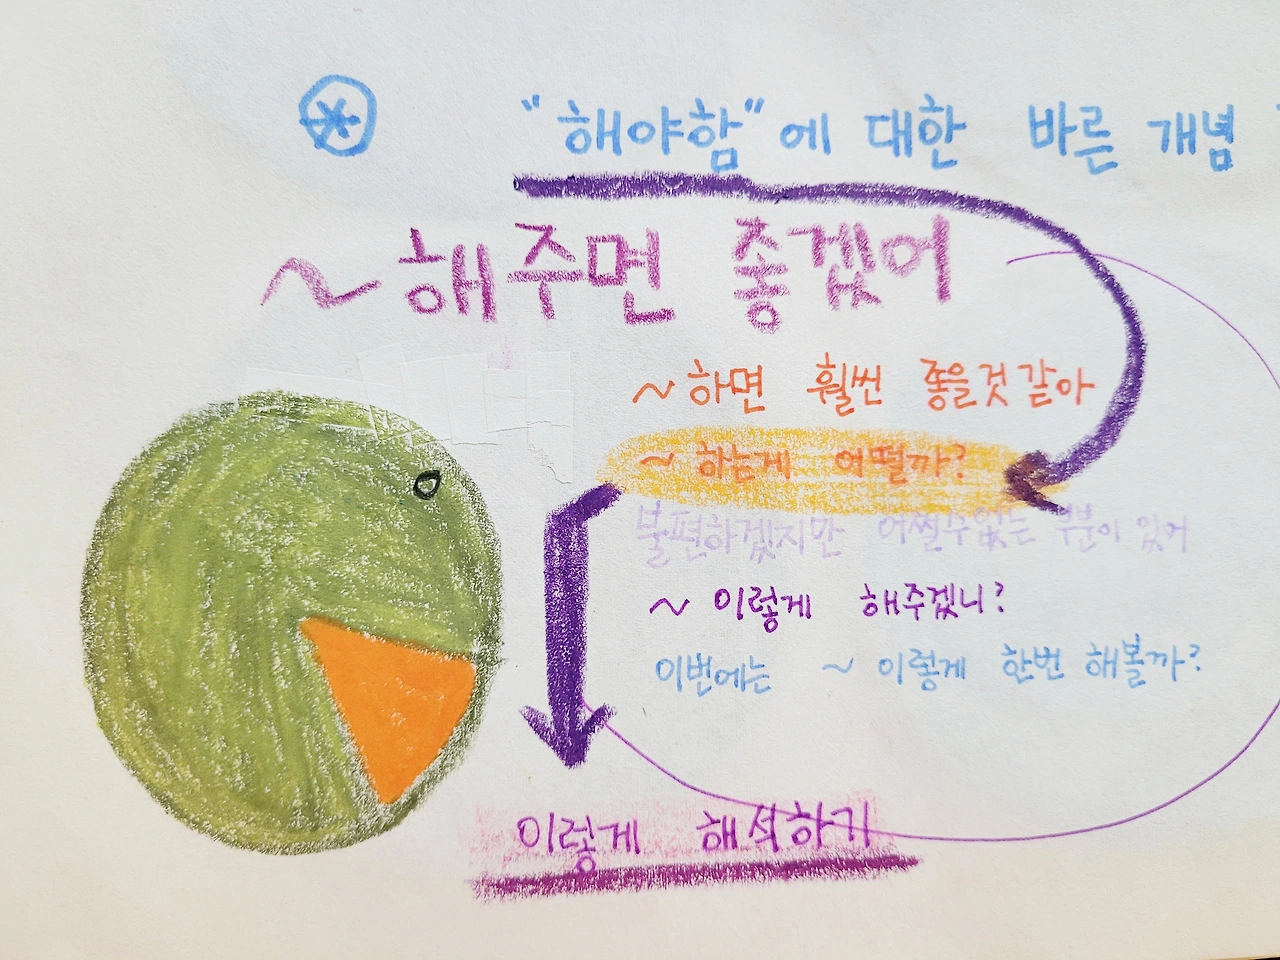 "해야함"에 대한 바른 개념
~해주면 좋겠어
~하면 훨씬 좋을것 같아
~하는게 어떨까?
불편하겠지만 어쩔수없는 부분이 있어
~ 이렇게 해주겠니?
이번에는 ~ 이렇게 한번 해볼까?
이렇게 해석하기